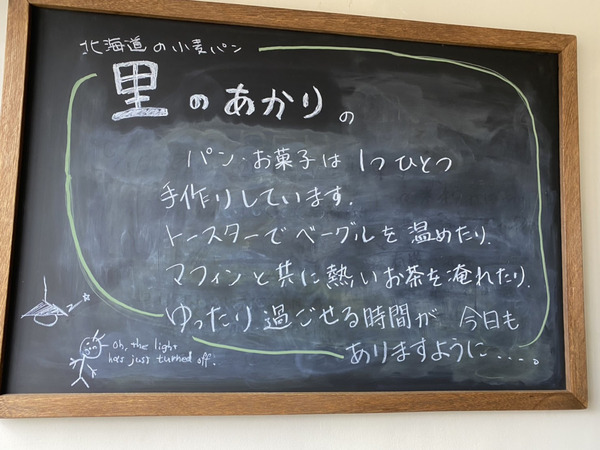 北海道の小麦パン
里のあかりの
パン・お菓子は1つひとつ
手作りしています.
トースターでベーグルを温めたり.
マフィンと共に熱いお茶を淹れたり.
ゆったり過ごせる時間が今日も
ありますように....。
Oh, the light
has just turned off.